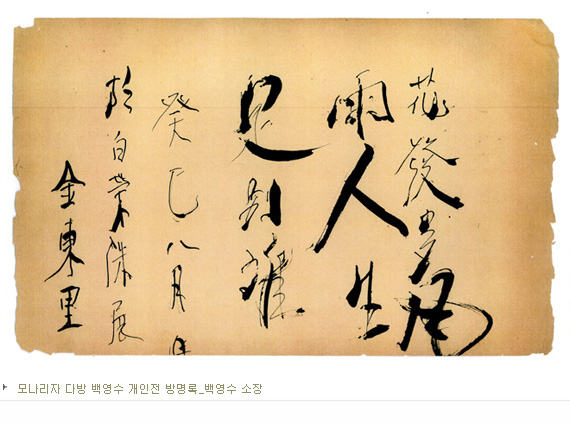 花發多風
雨人生
足別離
癸巳八月
於白榮洙展
金東里
모나리자 다방 백영수 개인전 방명록_백영수 소장